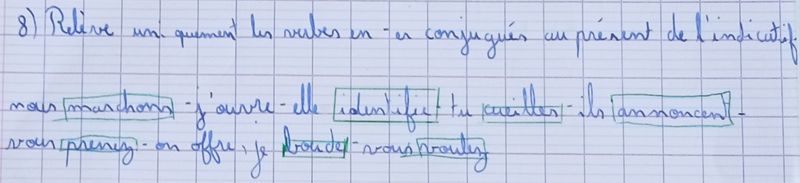 8) Relève uniquement les verbes en -er conjugués au présent de l'indicatif.
nous marchons - j'ouvre - elle identifie tu cueilles - ils annoncent -
vous prenez - on offre, je boude - vous voulez